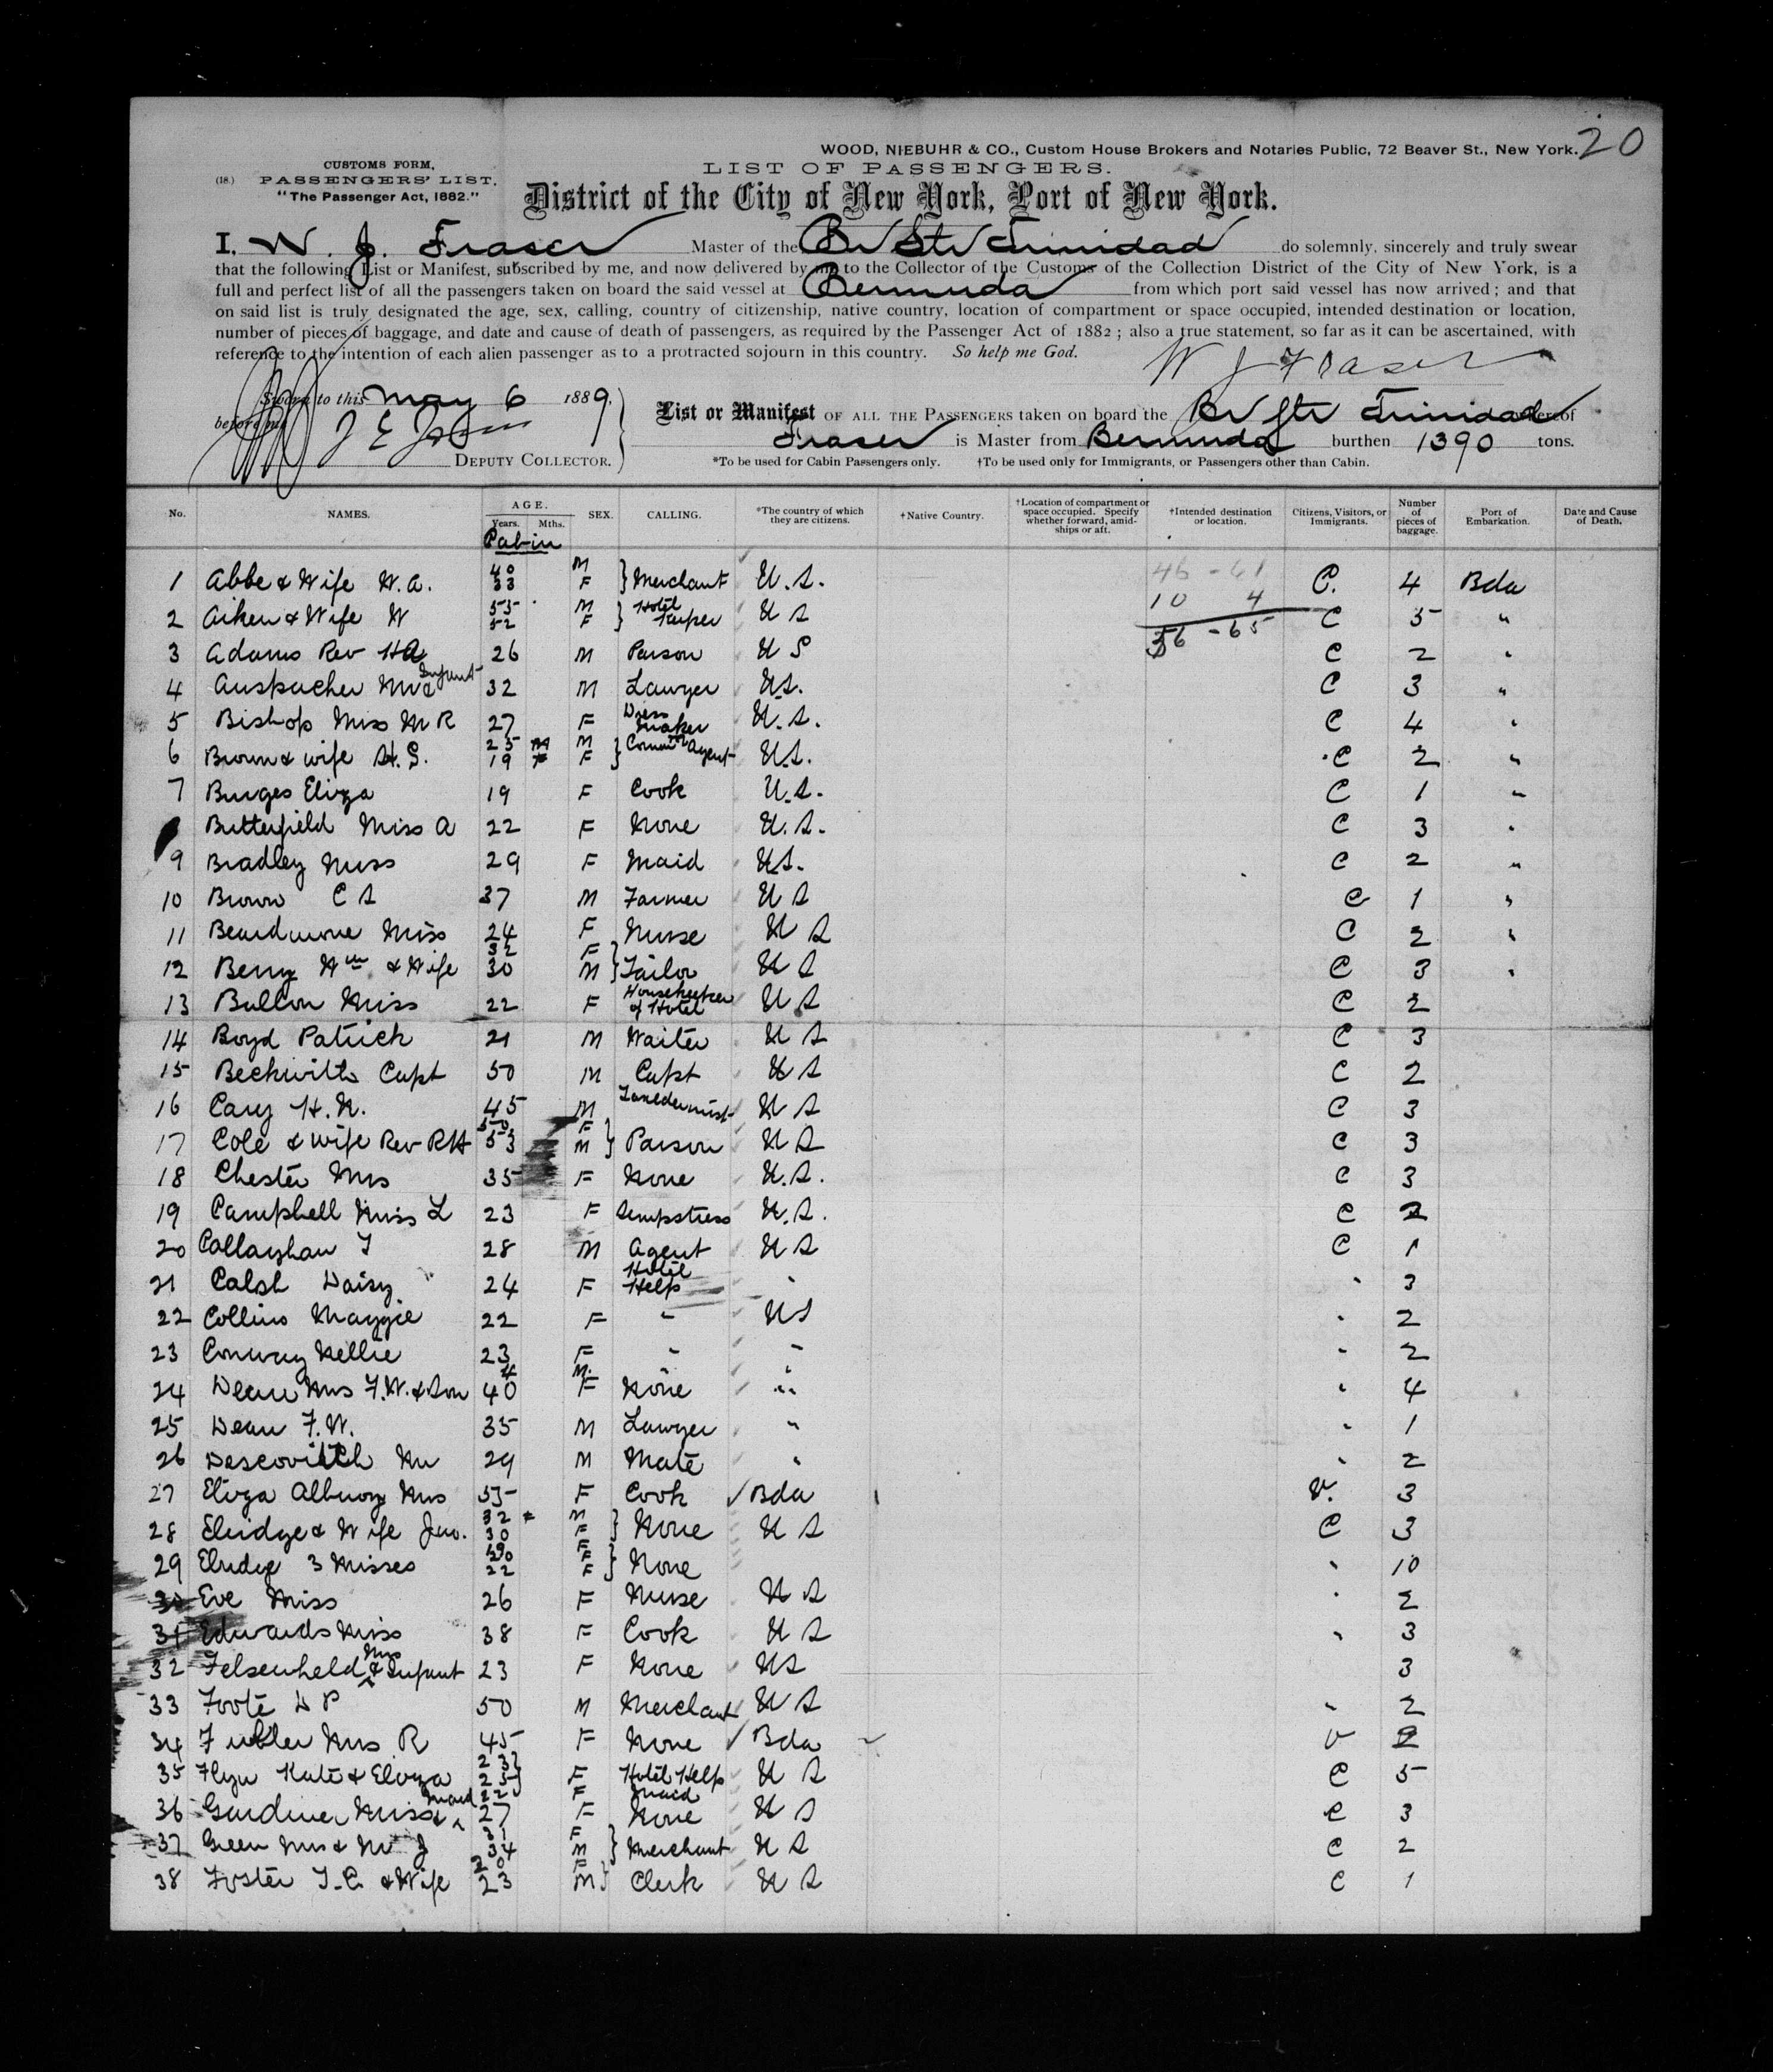 20
WOOD, NIEBUHR & CO., Custom House Brokers and Notaries Public, 72 Beaver St., New York.
CUSTOMS FORM,
(18.) PASSENGERS' LIST.
"The Passenger Act, 1882."
LIST OF PASSENGERS.
District of the City of New York, Port of New York.
I, W. J. Fraser Master of the Br Str Trinidad do solemnly, sincerely and truly swear
that the following List or Manifest, subscribed by me, and now delivered by me to the Collector of the Customs of the Collection District of the City of New York, is a
full and perfect list of all the passengers taken on board the said vessel at Bermuda from which port said vessel has now arrived; and that
on said list is truly designated the age, sex, calling, country of citizenship, native country, location of compartment or space occupied, intended destination or location,
number of pieces of baggage, and date and cause of death of passengers, as required by the Passenger Act of 1882; also a true statement, so far as it can be ascertained, with
reference to the intention of each alien passenger as to a protracted sojourn in this country. So help me God.
W J Fraser
Sworn to this May 6 1889.
before me
DEPUTY COLLECTOR.
List or Manifest OF ALL THE PASSENGERS taken on board the Br Str Trinidad whereof
Fraser is Master from Bermuda burthen 1390 tons.
*To be used for Cabin Passengers only. †To be used only for Immigrants, or Passengers other than Cabin.
No. NAMES. AGE. Years. Mths. SEX. CALLING. *The country of which they are citizens. †Native Country. †Location of compartment or space occupied. Specify whether forward, amidships or aft. †Intended destination or location. Citizens, Visitors, or Immigrants. Number of pieces of baggage. Port of Embarkation. Date and Cause of Death.
Cabin
46 - 61
10 4
56 - 65
1 Abbe & Wife W. A. 40 33 M F } Merchant U. S. C. 4 Bda
2 Aiken & Wife W 55 52 M F } Hotel Keeper U S C 5 "
3 Adams Rev HA 26 M Parson U S C 2 "
4 Auspacher Mr & Infant 32 M Lawyer U.S. C 3 "
5 Bishop Miss M R 27 F Dress maker U. S. C 4 "
6 Brown & wife H. S. 25 M 19 F M F } Commn Agent U.S. C 2 "
7 Burges Eliza 19 F Cook U. S. C 1 "
Butterfield Miss A 22 F None U. S. C 3 "
9 Bradley Miss 29 F Maid U.S. C 2 "
10 Brown C S 37 M Farmer U S C 1 "
11 Beardmore Miss 24 F Nurse U S C 2 "
12 Berry Wm & Wife 32 30 F M } Tailor U S C 3 "
13 Bullon Miss 22 F Housekeeper of Hotel U S C 2
14 Boyd Patrick 21 M Waiter U S C 3
15 Beckwith Capt 50 M Capt U S C 2
16 Cary H. N. 45 M Taxedermist U S C 3
17 Cole & wife Rev RH 50 53 F M } Parson U S C 3
18 Chester Mrs 35 F None U. S. C 3
19 Campbell Miss L 23 F Sempstress U. S. C 2
20 Callaghan T 28 M Agent U S C 1
21 Calsh Daisy 24 F Hotel Help " " 3
22 Collins Maggie 22 F " U S " 2
23 Conway Nellie 23 F " " " 2
24 Dean Mrs F. W. & Son 4 40 M. F None " " 4
25 Dean F. W. 35 M Lawyer " " 1
26 Descovitch Mr 29 M Mate " " 2
27 Eliza Albuoy Mrs 55 F Cook Bda V. 3
28 Elridge & Wife Jno. 32 30 M F } None U S C 3
29 Elridge 3 Misses 19 20 22 F F F } None " 10
30 Eve Miss 26 F Nurse U S " 2
31 Edwards Miss 38 F Cook U S " 3
32 Felsenheld Mrs & Infant 23 F None U S 3
33 Foote D P 50 M Merchant U S " 2
34 Fubler Mrs R 45 F None Bda V 2
35 Flyn Kate & Eliza 23 25 } F Hotel Help U S C 5
36 Gardiner Miss & maid 22 27 F F Maid None U S C 3
37 Green Mrs & Mr J 31 34 F M } Merchant U S C 2
38 Foster T. C. & Wife 20 23 F M } Clerk U S C 1